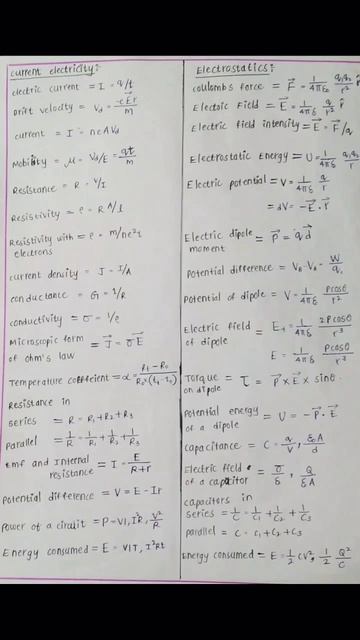 current electricity:
electric current = I = q/t
Drift velocity = Vd = -eEτ/m
current = I = neAVd
Mobility = μ = Vd/E = qt/m
Resistance = R = V/I
Resistivity = ρ = R A/l
Resistivity with = ρ = m/ne²τ
electrons
current density = J = I/A
conductance = G = 1/R
conductivity = σ = 1/ρ
Microscopic form = J⃗ = σE⃗
of ohm's law
Temperature coefficient = α =
Resistance in
series = R = R₁+R₂+R₃
Parallel = 1/R = 1/R₁ + 1/R₂ + 1/R₃
Emf and Internal = I = E/R+r
resistance
Potential difference = V = E - Ir
Power of a circuit = P = VI, I²R, V²/R
Energy consumed = E = VIT, I²Rt
Electrostatics:
coulombs force = F⃗ = 1/4πε₀ q₁q₂/r² r̂
Electric Field = E⃗ = 1/4πε q/r² r̂
Electric field intensity = E⃗ = F⃗/q
Electrostatic Energy = U = 1/4πε q₁q₂/r
Electric potential = V = 1/4πε q/r
= dV = -E⃗.r⃗
Electric dipole = P⃗ = qd⃗
moment
Potential difference = VB-VA = W/q
Potential of dipole = V = 1/4πε Pcosθ/r²
Electric field = E = 1/4πε 2Pcosθ/r³
of dipole
E = 1/4πε Pcosθ/r³
Torque = τ = P⃗ x E⃗ x sinθ
on dipole
Potential energy = U = -P⃗.E⃗
of a dipole
Capacitance = C = q/V, εA/d
Electric field = σ/ε, Q/εA
of a capacitor
capacitors in
series = 1/C = 1/C₁ + 1/C₂ + 1/C₃
parallel = C = C₁+C₂+C₃
Energy consumed = E = 1/2 CV², 1/2 Q²/C